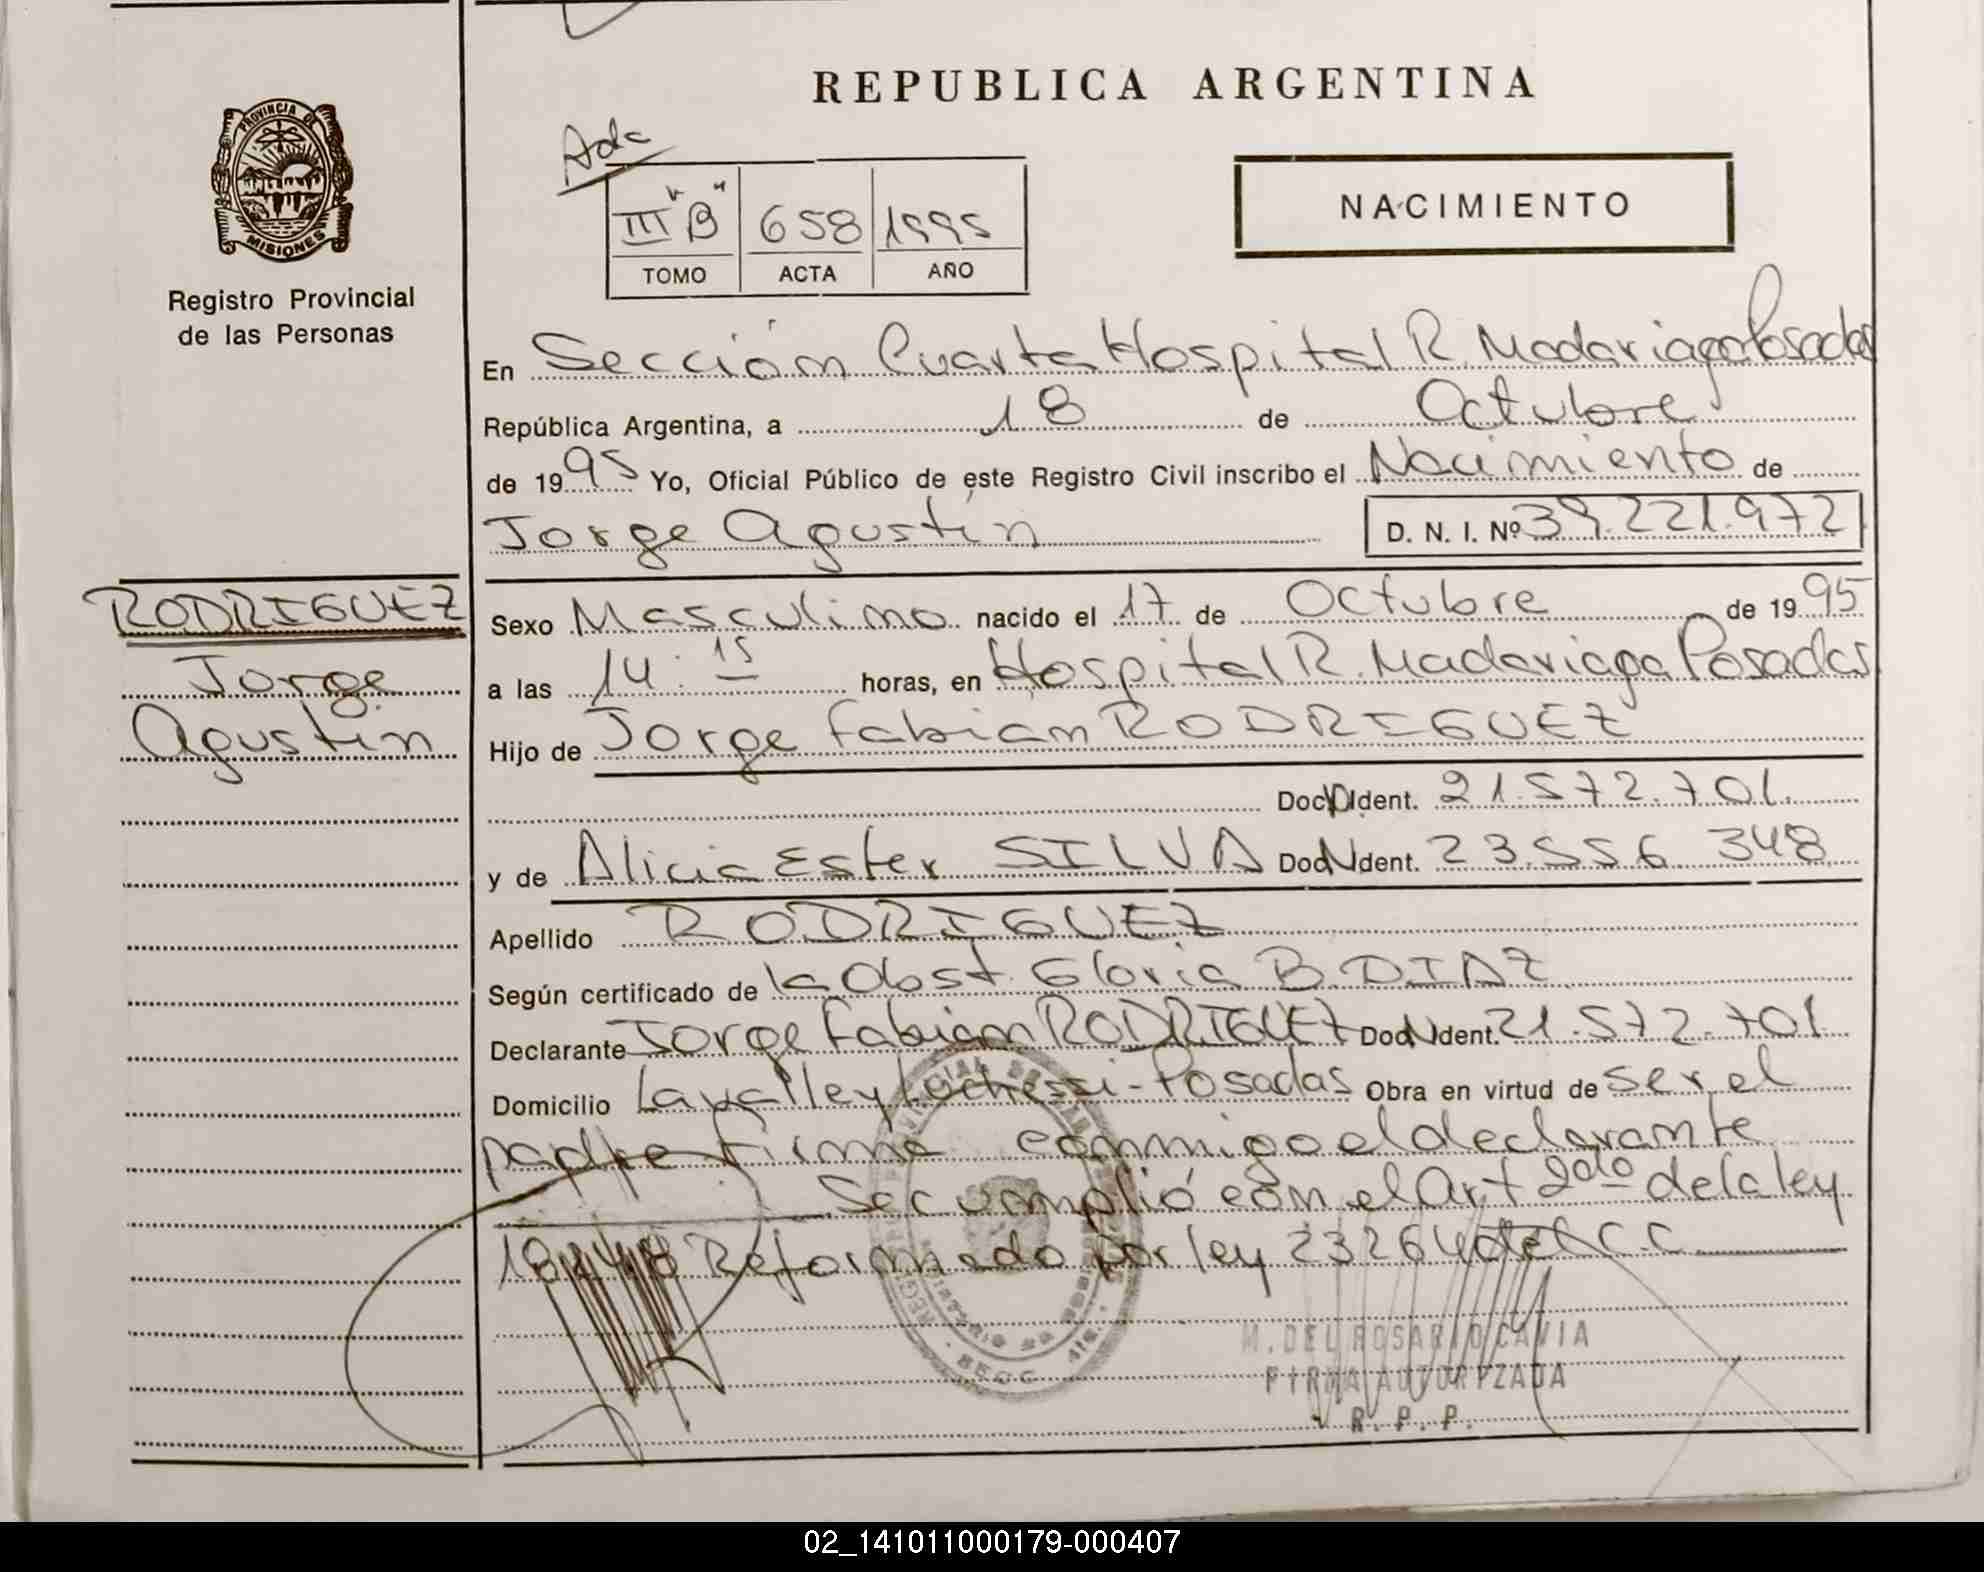 REPUBLICA ARGENTINA
PROVINCIA DE
MISIONES
Registro Provincial
de las Personas
III "B" 658 1995
TOMO ACTA AÑO
NACIMIENTO
En Sección Cuarta Hospital R. Madariaga Posadas
República Argentina, a 18 de Octubre
de 1995 Yo, Oficial Público de este Registro Civil inscribo el Nacimiento de
Jorge Agustín D. N. I. Nº 39.221.972
RODRIGUEZ
Jorge
Agustín
Sexo Masculino nacido el 17 de Octubre de 1995
a las 14:15 horas, en Hospital R. Madariaga Posadas
Hijo de Jorge Fabian RODRIGUEZ
Doc. Ident. 21.572.701.
y de Alicia Ester SILVA Doc. Ident. 23.556.348
Apellido RODRIGUEZ
Según certificado de la Obst. Gloria B. DIAZ
Declarante Jorge Fabian RODRIGUEZ Doc. Ident. 21.572.701
Domicilio Lavalle y - Posadas Obra en virtud de ser el
padre firma conmigo el declarante
Se cumplió con el Art 2do de la ley
18248 Reformado por ley 23264 del C.C.
M. DEL ROSARIO CAVIA
FIRMA AUTORIZADA
R. P. P.
02_141011000179-000407